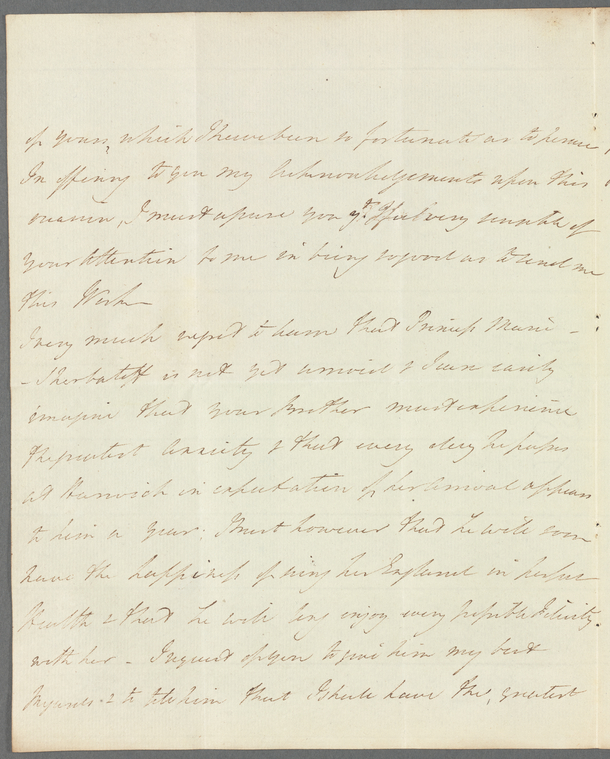 of yours, which I have been so fortunate as to peruse
In offering to you my Acknowledgements upon this
occasion, I must assure you yt. I feel very sensible of
your Attention to me in being so good as to send me
this Work
I very much regret to learn that Princess Marie -
- Sherbatoff is not yet arrived & I can easily
imagine that your Brother must experience
the greatest Anxiety & that every day he passes
at Harwich in expectation of her Arrival appears
to him a year: I trust however that he will soon
have the happiness of seeing her England in perfect
Health & that he will long enjoy every possible Felicity
with her - I request of you to give him my best
Regards & to tell him that I shall have the, greatest